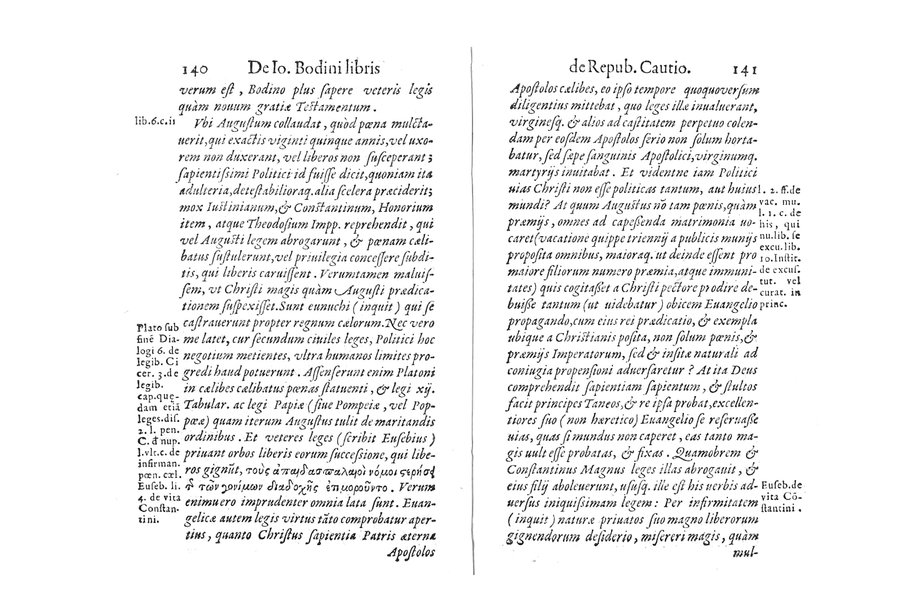 140 De Io. Bodini libris
verum est, Bodino plus sapere veteris legis
quàm nouum gratiæ Testamentum.
lib.6.c.ii
Vbi Augustum collaudat, quòd pœna mulcta-
uerit, qui exactis viginti quinque annis, vel uxo-
rem non duxerant, vel liberos non susceperant;
sapientissimi Politici id fuisse dicit, quoniam ita
adulteria, detestabilioraq. alia scelera præciderit;
mox Iustinianum, & Constantinum, Honorium
item, atque Theodosium Impp. reprehendit, qui
vel Augusti legem abrogarunt, & pœnam cæli-
batus sustulerunt, vel privilegia concessere subdi-
tis, qui liberis caruissent. Verumtamen maluis-
sem, vt Christi magis quàm Augusti prædica-
tionem suspexisset. Sunt eunuchi (inquit) qui se
castrauerunt propter regnum cælorum. Nec vero
me latet, cur secundum ciuiles leges, Politici hoc
negotium metientes, vltra humanos limites pro-
gredi haud potuerunt. Assenserunt enim Platoni
in cælibes cælibatus pœnas statuenti, & legi xij.
Tabular. ac legi Papiæ (siue Pompeiæ, vel Pop-
pææ) quam iterum Augustus tulit de maritandis
ordinibus. Et veteres leges (scribit Eusebius)
priuant orbos liberis eorum successione, qui libe-
ros gignũt, τοὺς
τῶν γονίμων διαδοχῆς Verum
enimuero imprudenter omnia lata sunt. Euan-
gelicæ autem legis virtus tãto comprobatur aper-
tius, quanto Christus sapientia Patris æterna
Apostolos
Plato sub
finẽ Dia-
logi 6. de
legib. Ci
cer. 3. de
legib.
cap. que-
dam etiã
leges. dis.
2. l. pen.
C. d nup.
l. vlt. c. de
infirman.
pœn. cæl.
Euseb. li.
4. de vita
Constan-
tini.
de Repub. Cautio. 141
Apostolos cælibes, eo ipso tempore quoquoversum
diligentius mittebat, quo leges illæ inualuerant,
virginesq. & alios ad castitatem perpetuo colen-
dam per eosdem Apostolos serio non solum horta-
batur, sed sæpe sanguinis Apostolici, virginumq.
martyrijs inuitabat. Et videntne iam Politici
uias Christi non esse politicas tantum, aut huius
mundi? At quum Augustus nõ tam pœnis, quàm
præmijs, omnes ad capeßenda matrimonia uo-
caret (vacatione quippe triennij a publicis munijs
proposita omnibus, maioraq. ut deinde essent pro
maiore filiorum numero præmia, atque immuni-
tates) quis cogitaßet a Christi pectore prodire de-
buiße tantum (ut uidebatur) obicem Euangelio
propagando, cum eius rei prædicatio, & exempla
ubique a Christianis posita, non solum pœnis, &
præmijs Imperatorum, sed & insitæ naturali ad
coniugia propensioni aduersaretur? At ita Deus
comprehendit sapientiam sapientum, & stultos
facit principes Taneos, & re ipsa probat, excellen-
tiores suo (non hæretico) Euangelio se reseruaße
uias, quas si mundus non caperet, eas tanto ma-
gis uult esse probatas, & fixas. Quamobrem &
Constantinus Magnus leges illas abrogauit, &
eius filij aboleuerunt, ususq. ille est his uerbis ad-
uersus iniquissimam legem: Per infirmitatem
(inquit) naturæ priuatos suo magno liberorum
gignendorum desiderio, misereri magis, quàm
mul-
l. 2. ff. de
vac. mu.
l. 1. c. de
his, qui
nu. lib. se
excu. lib.
10. Instit.
de excus.
tut. vel
curat. in
princ.
Euseb. de
vita Cõ-
stantini.